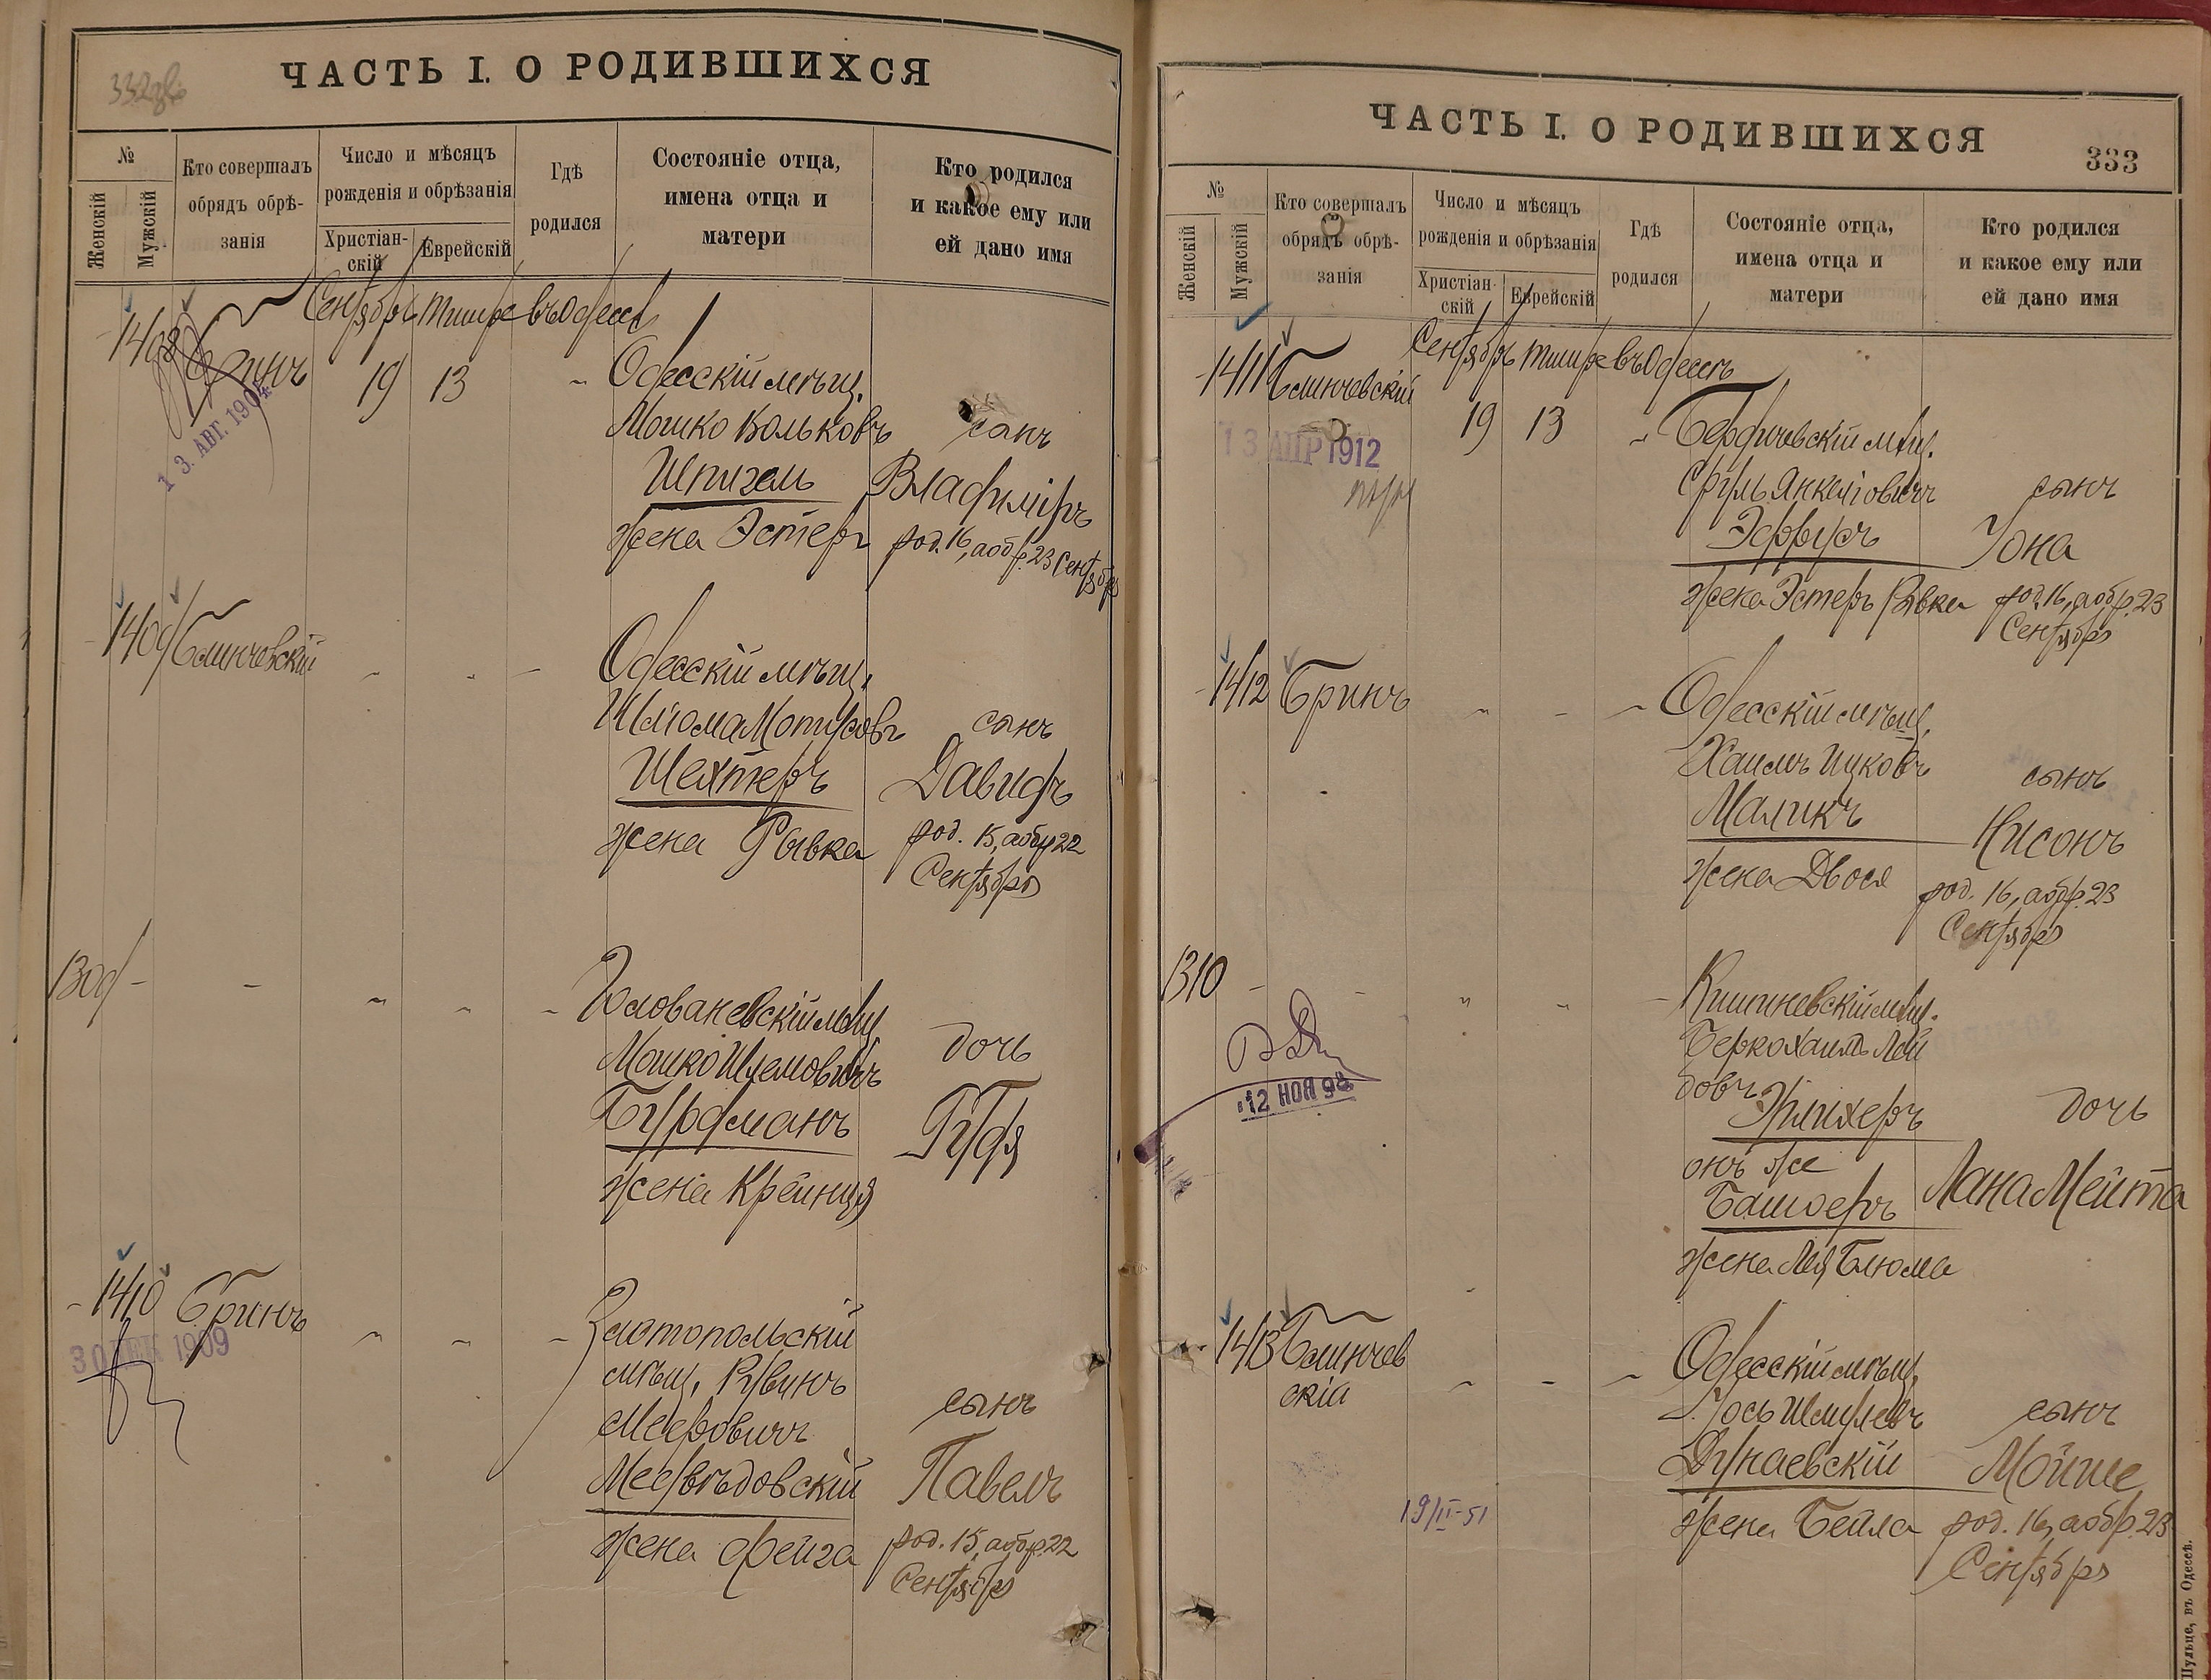 ЧАСТЬ I. О РОДИВШИХСЯ
№
Женскій
Мужскій
Кто совершалъ
обрядъ обрѣ-
занія
Число и мѣсяцъ
рожденія и обрѣзанія
Христіан-
скій
Еврейскій
Гдѣ
родился
Состояніе отца,
имена отца и
матери
Кто родился
и какое ему или
ей дано имя
Сентябрь Тишре въ Одессѣ
1408 Бринъ 19 13 Одесскій мѣщ.
13. АВГ. 1904
Мошко Вольковъ сынъ
Шпигель Владиміръ
жена Эстеръ род. 16, аобр. 23 Сентября
1409 Блинчевскій Одесскій мѣщ.
Шліома Мотусовъ сынъ
Шехтеръ Давидъ
жена Рывка род. 15, аобр. 22
Сентября
1309 - - Голованевскій мѣщ.
Мошко Шлемовичъ дочь
Бурдманъ Руфя
жена Крейнця
1410 Бринъ Златопольскій
30 ДЕК 1909
мѣщ. Рувинъ
Мееровичъ сынъ
Медвѣдовскій Павелъ
жена Фейга род. 15, аобр. 22
Сентября
ЧАСТЬ I. О РОДИВШИХСЯ
333
№
Женскій
Мужскій
Кто совершалъ
обрядъ обрѣ-
занія
Число и мѣсяцъ
рожденія и обрѣзанія
Христіан-
скій
Еврейскій
Гдѣ
родился
Состояніе отца,
имена отца и
матери
Кто родился
и какое ему или
ей дано имя
Сентябрь Тишре въ Одессѣ
1411 Блинчевскій 19 13 Бердичевскій мѣщ.
13 АПР 1912
Сруль Янкеліовичъ сынъ
Эфрусъ Іона
жена Эстеръ Рывка род. 16, аобр. 23
Сентября
1412 Бринъ Одесскій мѣщ.
Хаимъ Ицковъ сынъ
Маликъ Нисонъ
жена Двося род. 16, аобр. 23
Сентября
1310 - - Кишиневскій мѣщ.
Берко Хаимъ Лей
12 НОЯ 98
бовъ
Эйлихеръ дочь
онъ же
Башоеръ Лана Мейта
жена Лея Блюма
1413 Блинчев Одесскій мѣщ.
скій
Іось Шмулевъ сынъ
Дунаевскій Мойше
19/II-51
жена Бейла род. 16, аобр. 23
Сентября
Шульце, въ Одессѣ.